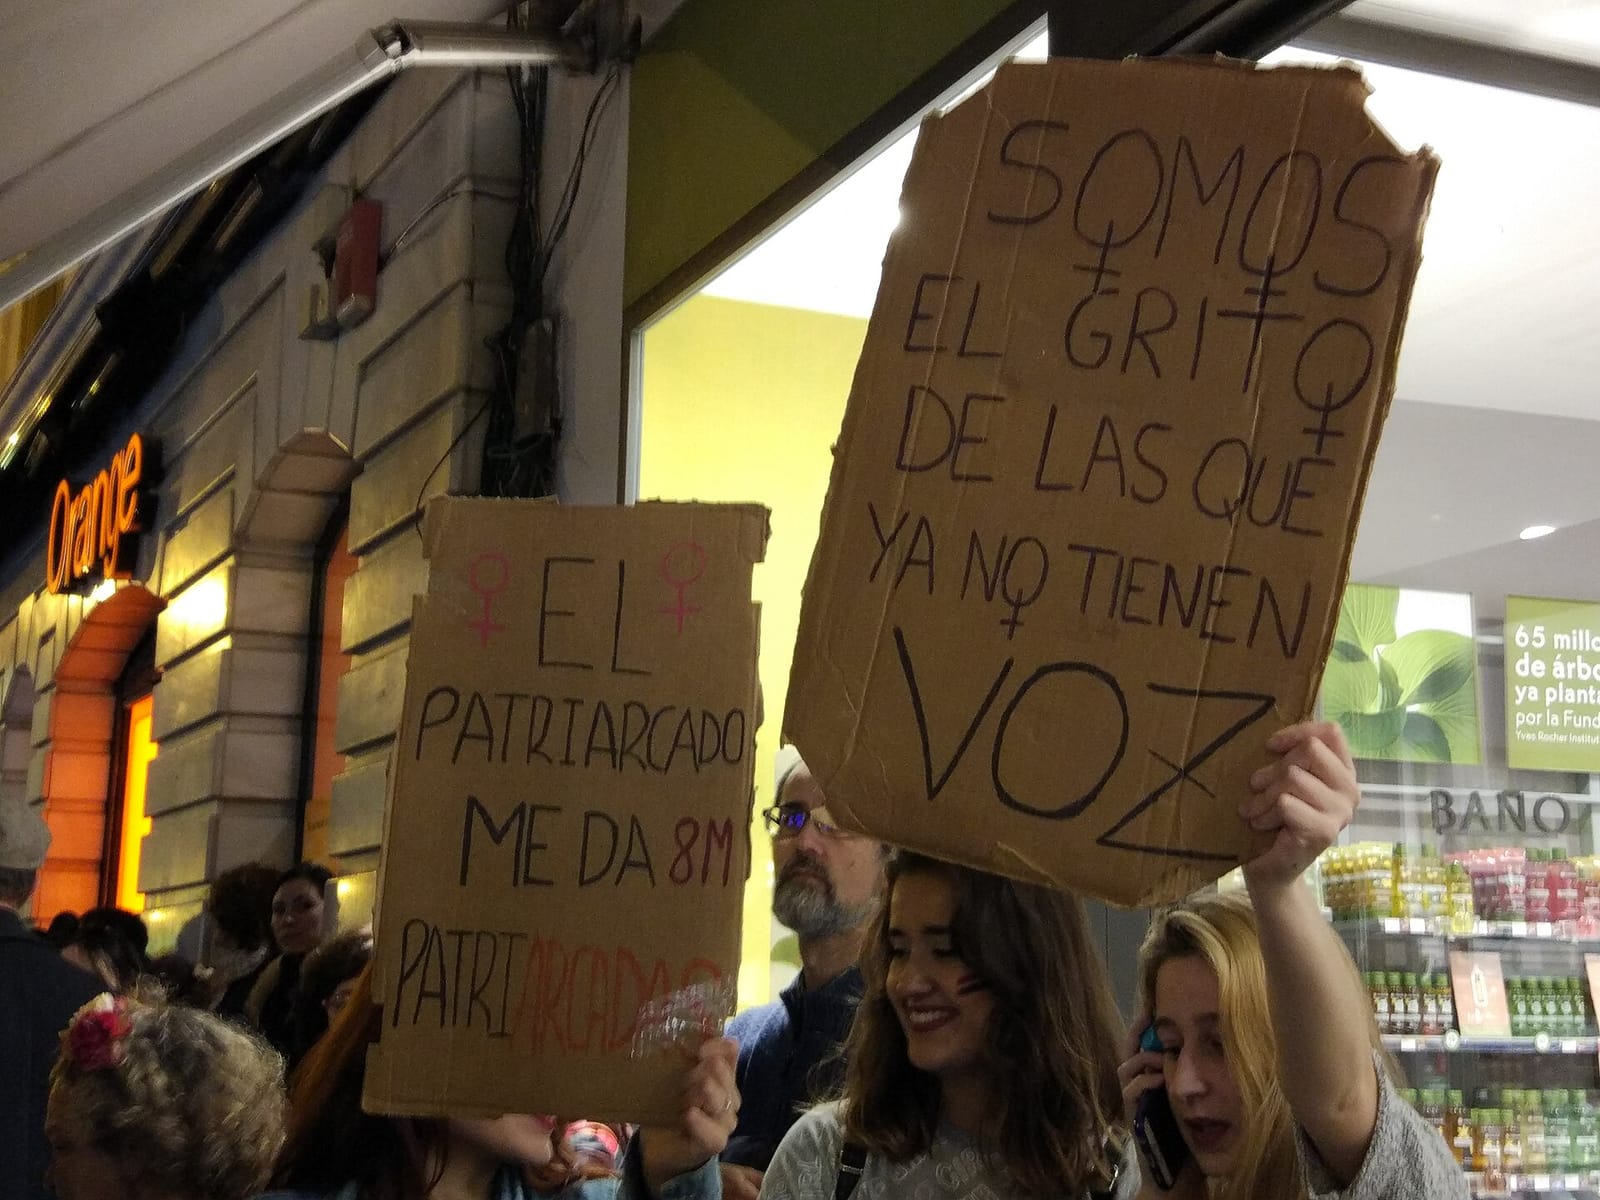 Orange
♀ EL ♀
PATRIARCADO
ME DA 8M
PATRIARCADAS
SOMOS
EL GRITO
DE LAS QUE
YA NO TIENEN
VOZ
65 millo
de árbo
ya planta
por la Fund
Yves Rocher Institut
BAÑO